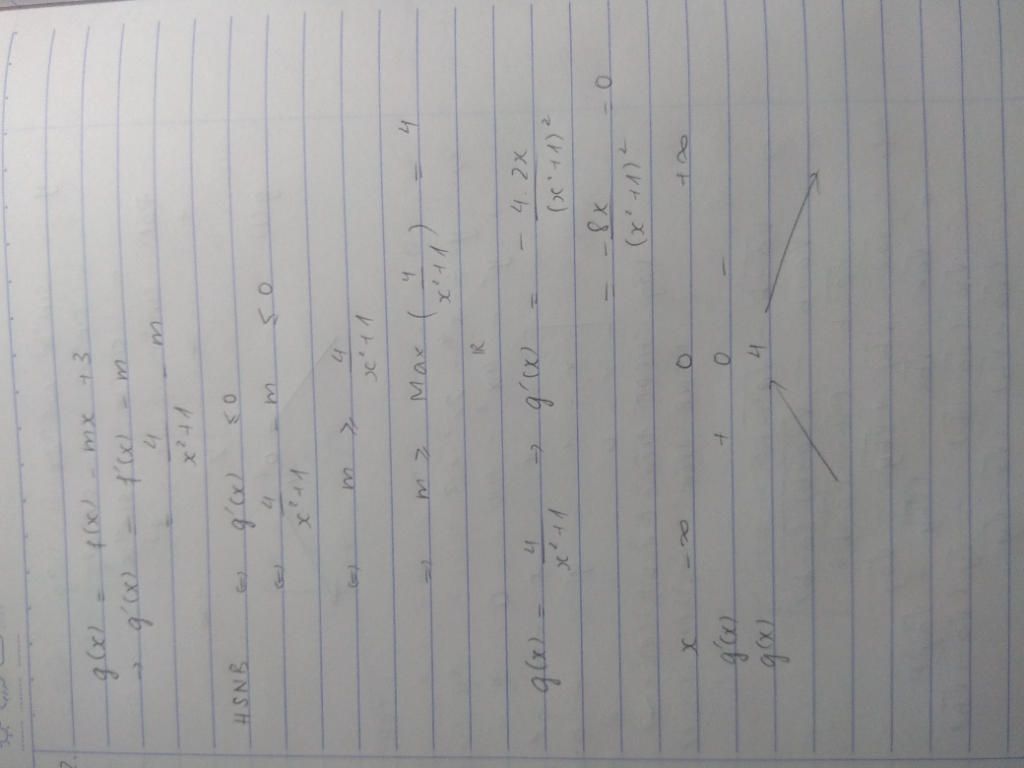 g(x) = f(x) - mx + 3
→ g'(x) = f'(x) - m
= 4/(x²+1) - m
HSNB ⇔ g'(x) ≤ 0
⇔ 4/(x²+1) - m ≤ 0
⇔ m ≥ 4/(x²+1)
⇒ m ≥ Max (4/(x²+1)) = 4
ℝ
g(x) = 4/(x²+1) → g'(x) = - 4.2x/(x²+1)²
= -8x/(x²+1)² = 0
x -∞ 0 +∞
g'(x) + 0 -
g(x) 4